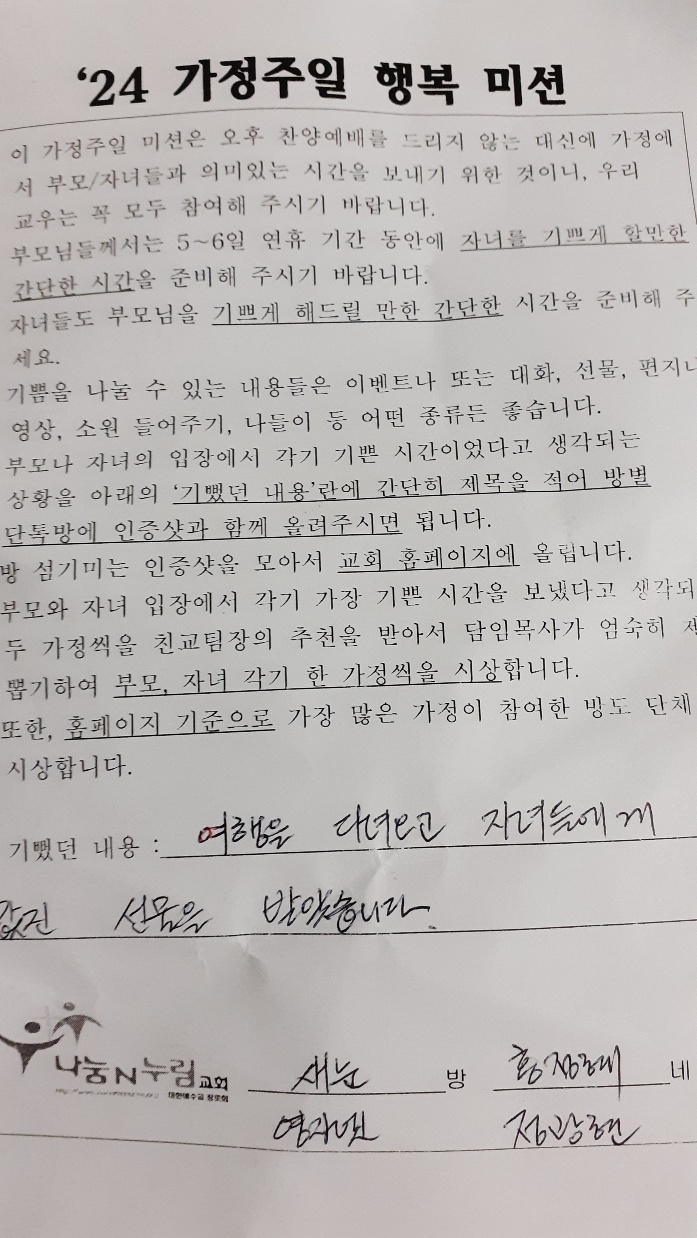 ‘24 가정주일 행복 미션
이 가정주일 미션은 오후 찬양예배를 드리지 않는 대신에 가정에
서 부모/자녀들과 의미있는 시간을 보내기 위한 것이니, 우리
교우는 꼭 모두 참여해 주시기 바랍니다.
부모님들께서는 5~6일 연휴 기간 동안에 자녀를 기쁘게 할만한
간단한 시간을 준비해 주시기 바랍니다.
자녀들도 부모님을 기쁘게 해드릴 만한 간단한 시간을 준비해 주
세요.
기쁨을 나눌 수 있는 내용들은 이벤트나 또는 대화, 선물, 편지나
영상, 소원 들어주기, 나들이 등 어떤 종류든 좋습니다.
부모나 자녀의 입장에서 각기 기쁜 시간이었다고 생각되는
상황을 아래의 ‘기뻤던 내용’란에 간단히 제목을 적어 방별
단톡방에 인증샷과 함께 올려주시면 됩니다.
방 섬기미는 인증샷을 모아서 교회 홈페이지에 올립니다.
부모와 자녀 입장에서 각기 가장 기쁜 시간을 보냈다고 생각되
두 가정씩을 친교팀장의 추천을 받아서 담임목사가 엄숙히 제
뽑기하여 부모, 자녀 각기 한 가정씩을 시상합니다.
또한, 홈페이지 기준으로 가장 많은 가정이 참여한 방도 단체
시상합니다.
기뻤던 내용 : 여행을 다녀오고 자녀들에게
값진 선물을 받았습니다.
나눔N누림교회
대한예수교 장로회
새눈 방 네